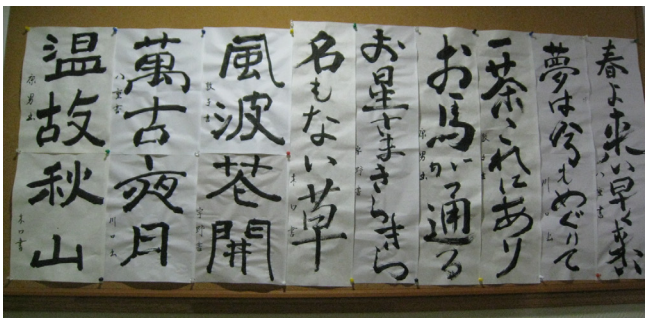 春よ来い早く来い
夢は今もめぐりて
一茶これにあり
お馬が通る
お星さまきらきら
名もない草
風波
花開
萬古
夜月
川口書
温故
秋山